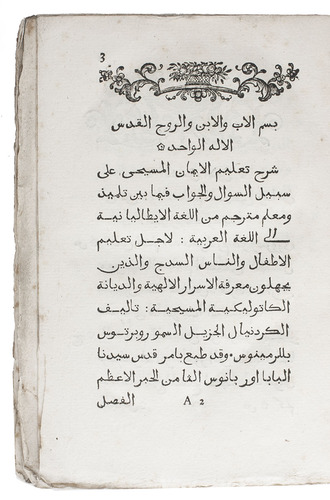 3
بسم الاب والابن والروح القدس
الاله الواحد ۞
شرح تعليم الايمان المسيحي على
سبيل السوال والجواب فيما بين تلميذ
ومعلم مترجم من اللغة الايطاليانية
الى اللغة العربية : لاجل تعليم
الاطفال والناس السدج والذين
يجهلون معرفة الاسرار الالهية والديانة
الكاتوليكية المسيحية : تاليف
الكردنيال الجزيل السمو روبرتوس
بللرمينوس ٠ وقد طبع بامر قدس سيدنا
البابا اوربانوس الثامن الحبر الاعظم
A 2 الفصل